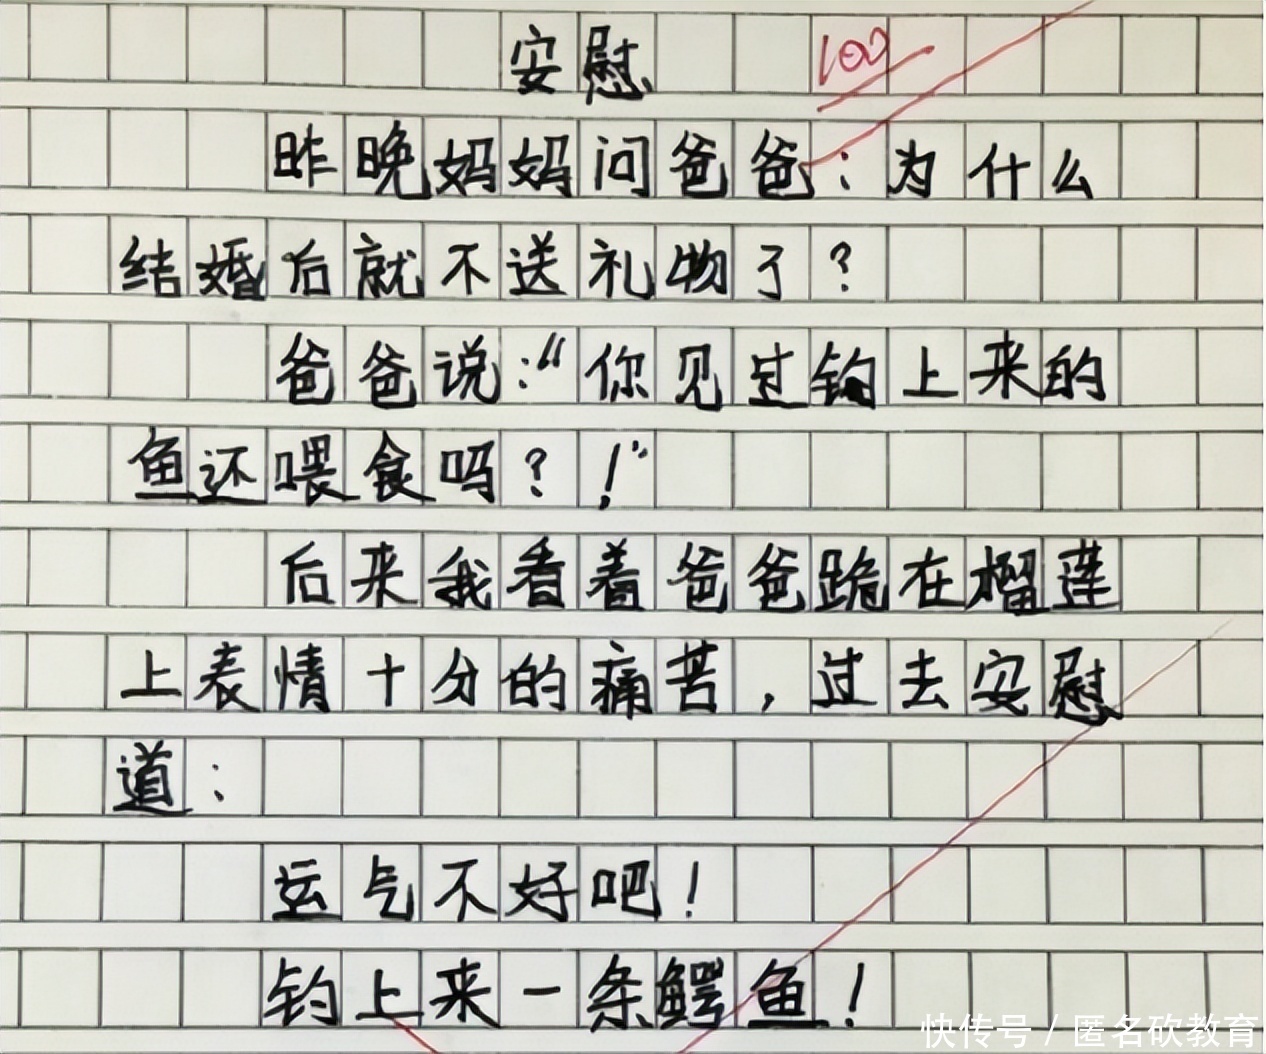 安慰 100
昨晚妈妈问爸爸:为什么
结婚后就不送礼物了?
爸爸说:“你见过钓上来的
鱼还喂食吗?!”
后来我看着爸爸跪在榴莲
上表情十分的痛苦,过去安慰
道:
运气不好吧!
钓上来一条鳄鱼!
快传号/匿名砍教育